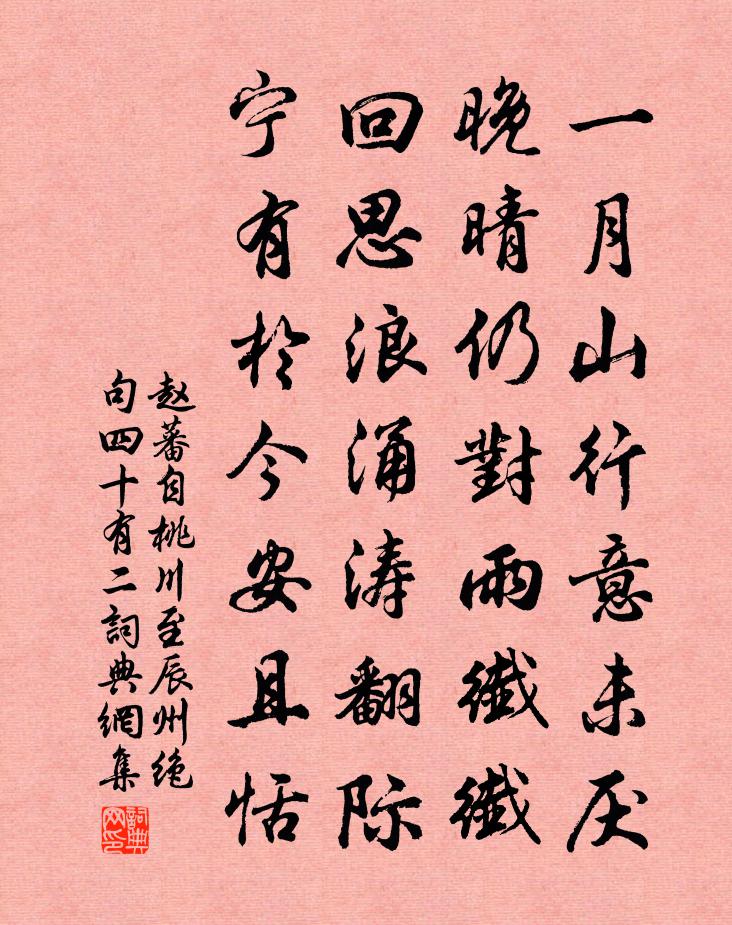 一月山行意未厌
晚晴仍對雨纖纖
回思浪涌涛翻际
宁有於今安且恬
赵蕃自桃川至辰州绝
句四十有二詞典網集
詞典
网印